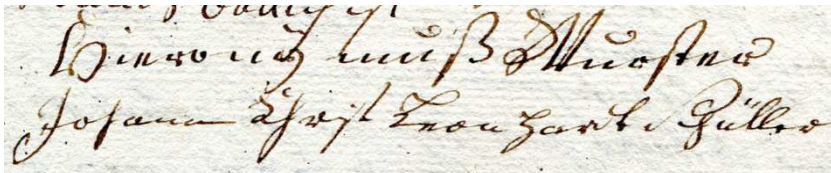 Hierony muß Wurster
Johann Christ Leonhardt Müller